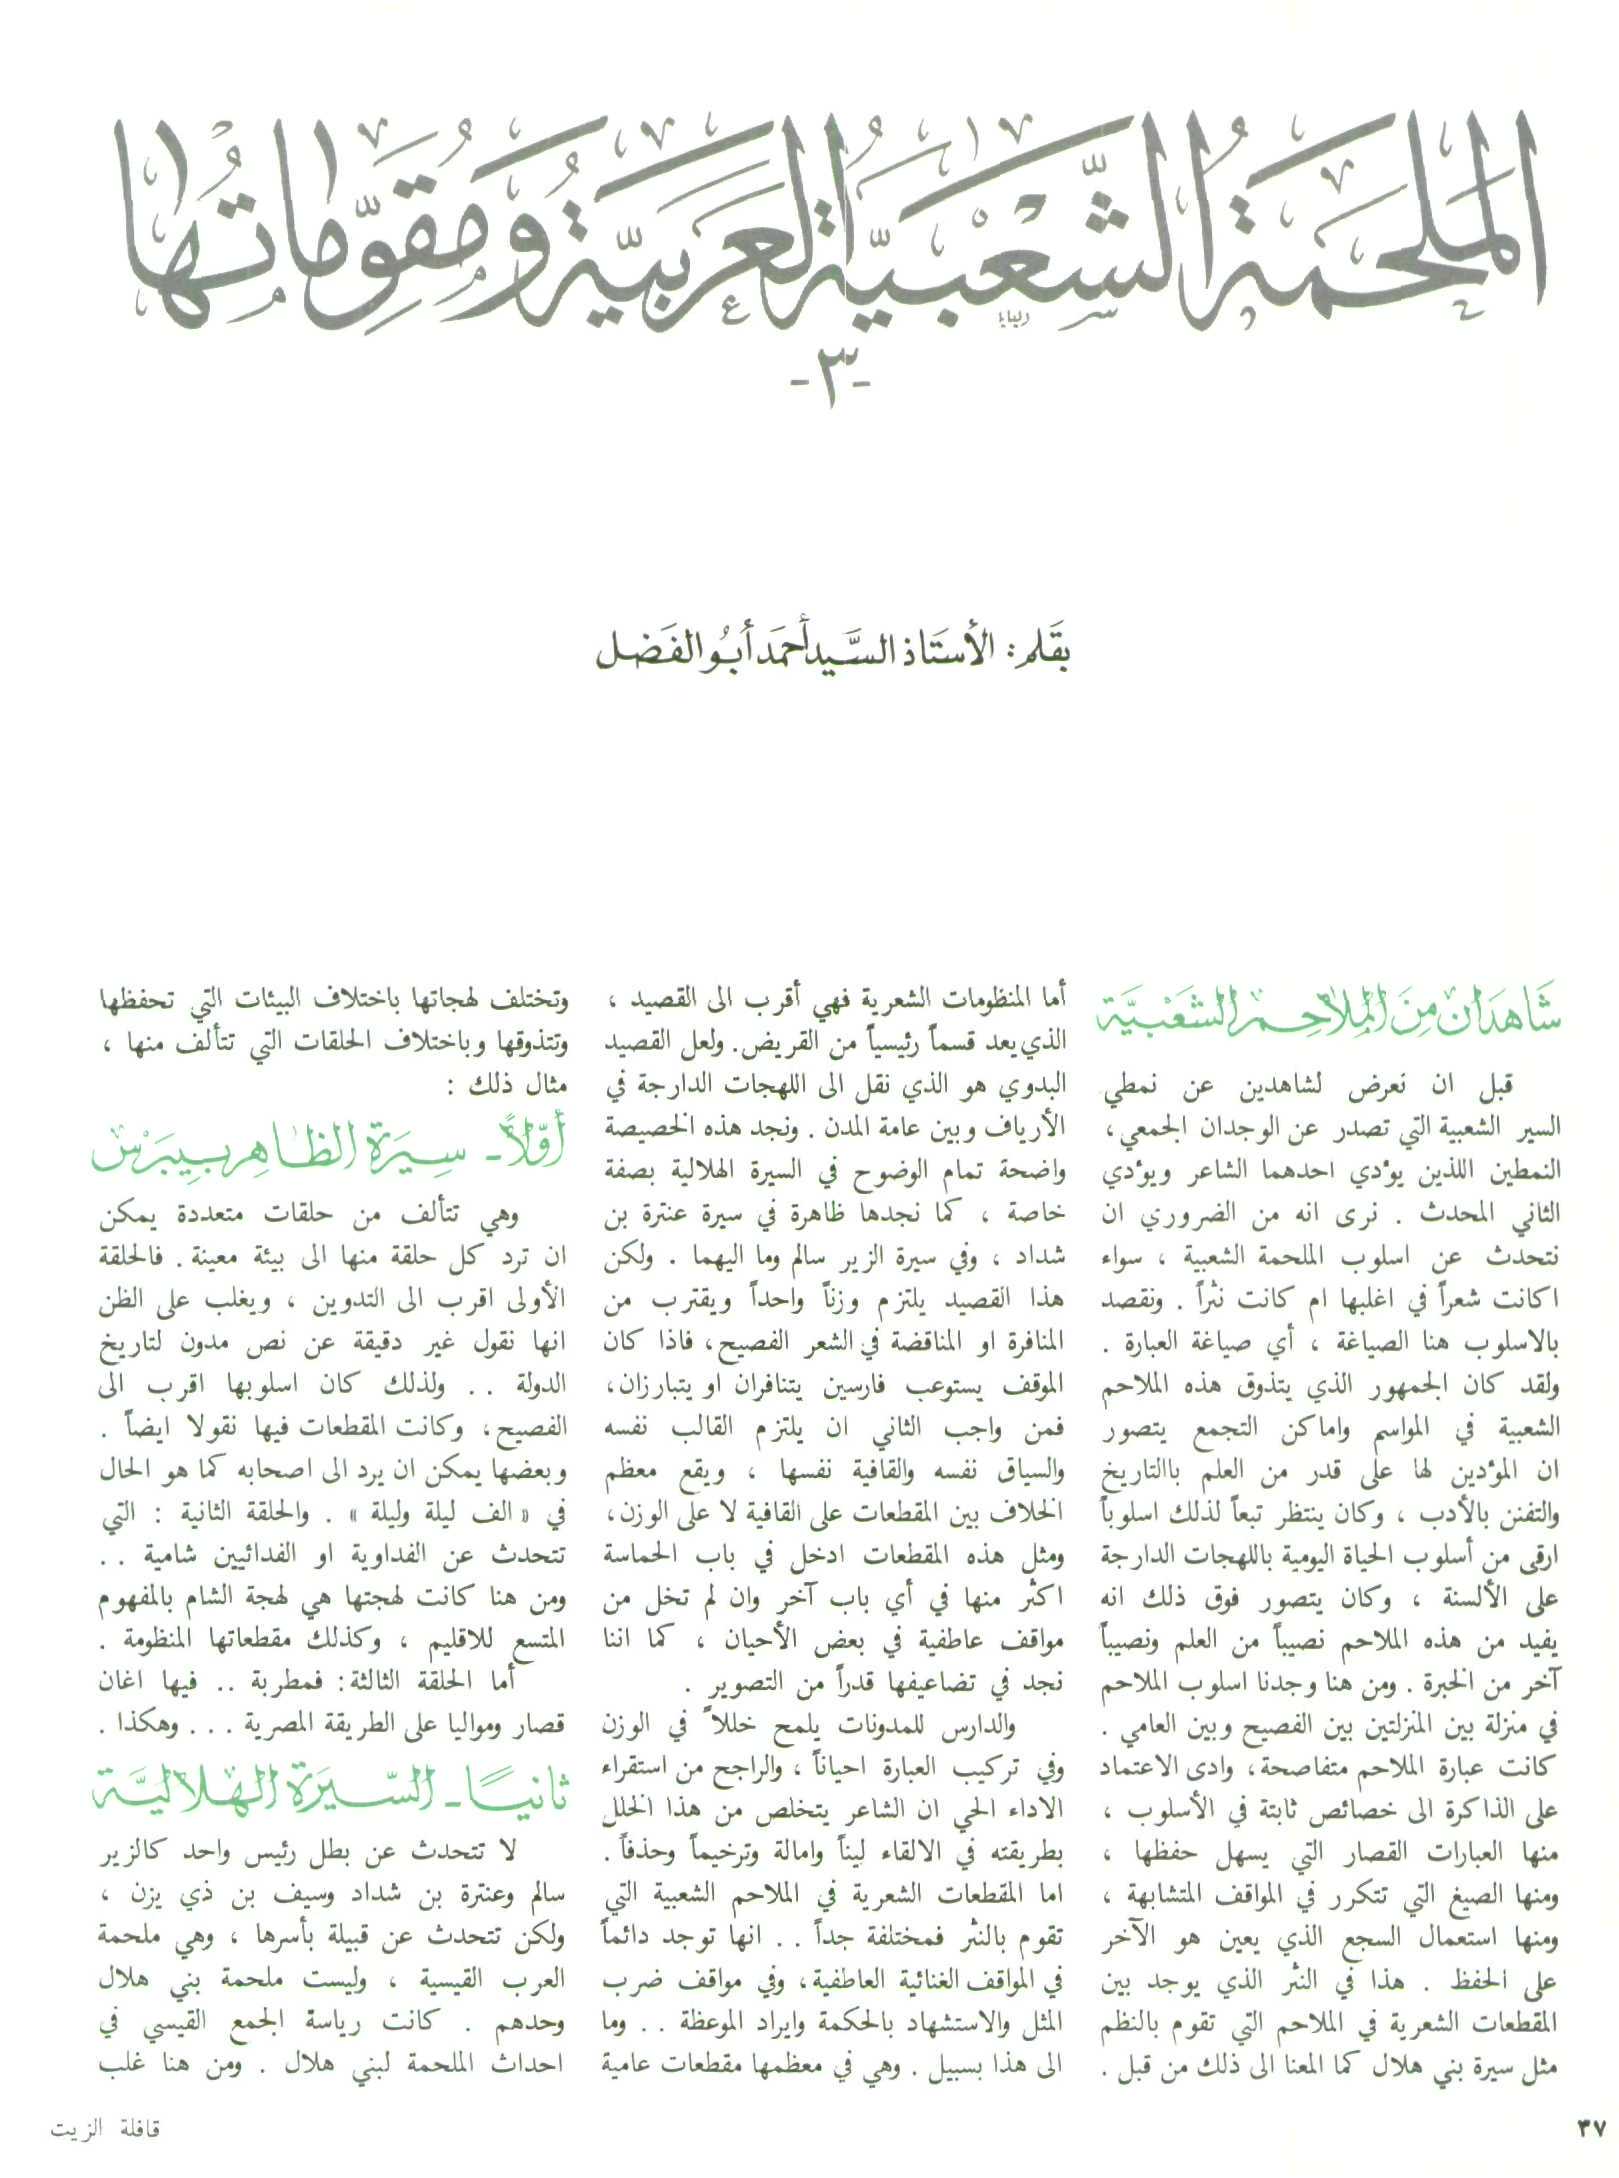 الملحمة الشعبية العربية ومقوماتها
-٣-
بقلم: الأستاذ السيد أحمد أبو الفضل
شاهدان من الملاحم الشعبية
قبل ان نعرض لشاهدين عن نمطي
السير الشعبية التي تصدر عن الوجدان الجمعي،
النمطين اللذين يؤدي احدهما الشاعر ويؤدي
الثاني المحدث . نرى انه من الضروري ان
نتحدث عن اسلوب الملحمة الشعبية ، سواء
اكانت شعراً في اغلبها ام كانت نثراً . ونقصد
بالاسلوب هنا الصياغة ، أي صياغة العبارة .
ولقد كان الجمهور الذي يتذوق هذه الملاحم
الشعبية في المواسم واماكن التجمع يتصور
ان المؤدين لها على قدر من العلم باالتاريخ
والتفنن بالأدب ، وكان ينتظر تبعاً لذلك اسلوباً
ارقى من أسلوب الحياة اليومية باللهجات الدارجة
على الألسنة ، وكان يتصور فوق ذلك انه
يفيد من هذه الملاحم نصيباً من العلم ونصيباً
آخر من الخبرة . ومن هنا وجدنا اسلوب الملاحم
في منزلة بين المنزلتين بين الفصيح وبين العامي .
كانت عبارة الملاحم متفاصحة، وادى الاعتماد
على الذاكرة الى خصائص ثابتة في الأسلوب ،
منها العبارات القصار التي يسهل حفظها ،
ومنها الصيغ التي تتكرر في المواقف المتشابهة ،
ومنها استعمال السجع الذي يعين هو الآخر
على الحفظ . هذا في النثر الذي يوجد بين
المقطعات الشعرية في الملاحم التي تقوم بالنظم
مثل سيرة بني هلال كما المعنا الى ذلك من قبل .
أما المنظومات الشعرية فهي أقرب الى القصيد ،
الذي يعد قسماً رئيسياً من القريض. ولعل القصيد
البدوي هو الذي نقل الى اللهجات الدارجة في
الأرياف وبين عامة المدن . ونجد هذه الخصيصة
واضحة تمام الوضوح في السيرة الهلالية بصفة
خاصة ، كما نجدها ظاهرة في سيرة عنترة بن
شداد ، وفي سيرة الزير سالم وما اليهما . ولكن
هذا القصيد يلتزم وزناً واحداً ويقترب من
المنافرة او المناقضة في الشعر الفصيح، فاذا كان
الموقف يستوعب فارسين يتنافران او يتبارزان،
فمن واجب الثاني ان يلتزم القالب نفسه
والسياق نفسه والقافية نفسها ، ويقع معظم
الخلاف بين المقطعات على القافية لا على الوزن،
ومثل هذه المقطعات ادخل في باب الحماسة
اكثر منها في أي باب آخر وان لم تخل من
مواقف عاطفية في بعض الأحيان ، كما اننا
نجد في تضاعيفها قدراً من التصوير .
والدارس للمدونات يلمح خللاً في الوزن
وفي تركيب العبارة احياناً ، والراجح من استقراء
الاداء الحي ان الشاعر يتخلص من هذا الخلل
بطريقته في الالقاء ليناً وامالة وترخيماً وحذفاً .
اما المقطعات الشعرية في الملاحم الشعبية التي
تقوم بالنثر فمختلفة جداً . . انها توجد دائماً
في المواقف الغنائية العاطفية، وفي مواقف ضرب
المثل والاستشهاد بالحكمة وايراد الموعظة . . وما
الى هذا بسبيل . وهي في معظمها مقطعات عامية
وتختلف لهجاتها باختلاف البيئات التي تحفظها
وتتذوقها وباختلاف الحلقات التي تتألف منها ،
مثال ذلك :
أولاً - سيرة الظاهر بيبرس
وهي تتألف من حلقات متعددة يمكن
ان ترد كل حلقة منها الى بيئة معينة . فالحلقة
الأولى اقرب الى التدوين ، ويغلب على الظن
انها نقول غير دقيقة عن نص مدون لتاريخ
الدولة . . ولذلك كان اسلوبها اقرب الى
الفصيح، وكانت المقطعات فيها نقولا ايضاً .
وبعضها يمكن ان يرد الى اصحابه كما هو الحال
في « الف ليلة وليلة » . والحلقة الثانية : التي
تتحدث عن الفداوية او الفدائيين شامية . .
ومن هنا كانت لهجتها هي لهجة الشام بالمفهوم
المتسع للاقليم ، وكذلك مقطعاتها المنظومة .
أما الحلقة الثالثة: فمطربة .. فيها اغان
قصار ومواليا على الطريقة المصرية . . . وهكذا .
ثانياً - السيرة الهلالية
لا تتحدث عن بطل رئيس واحد كالزير
سالم وعنترة بن شداد وسيف بن ذي يزن ،
ولكن تتحدث عن قبيلة بأسرها ، وهي ملحمة
العرب القيسية ، وليست ملحمة بني هلال
وحدهم . كانت رياسة الجمع القيسي في
احداث الملحمة لبني هلال . ومن هنا غلب
٣٧
قافلة الزيت